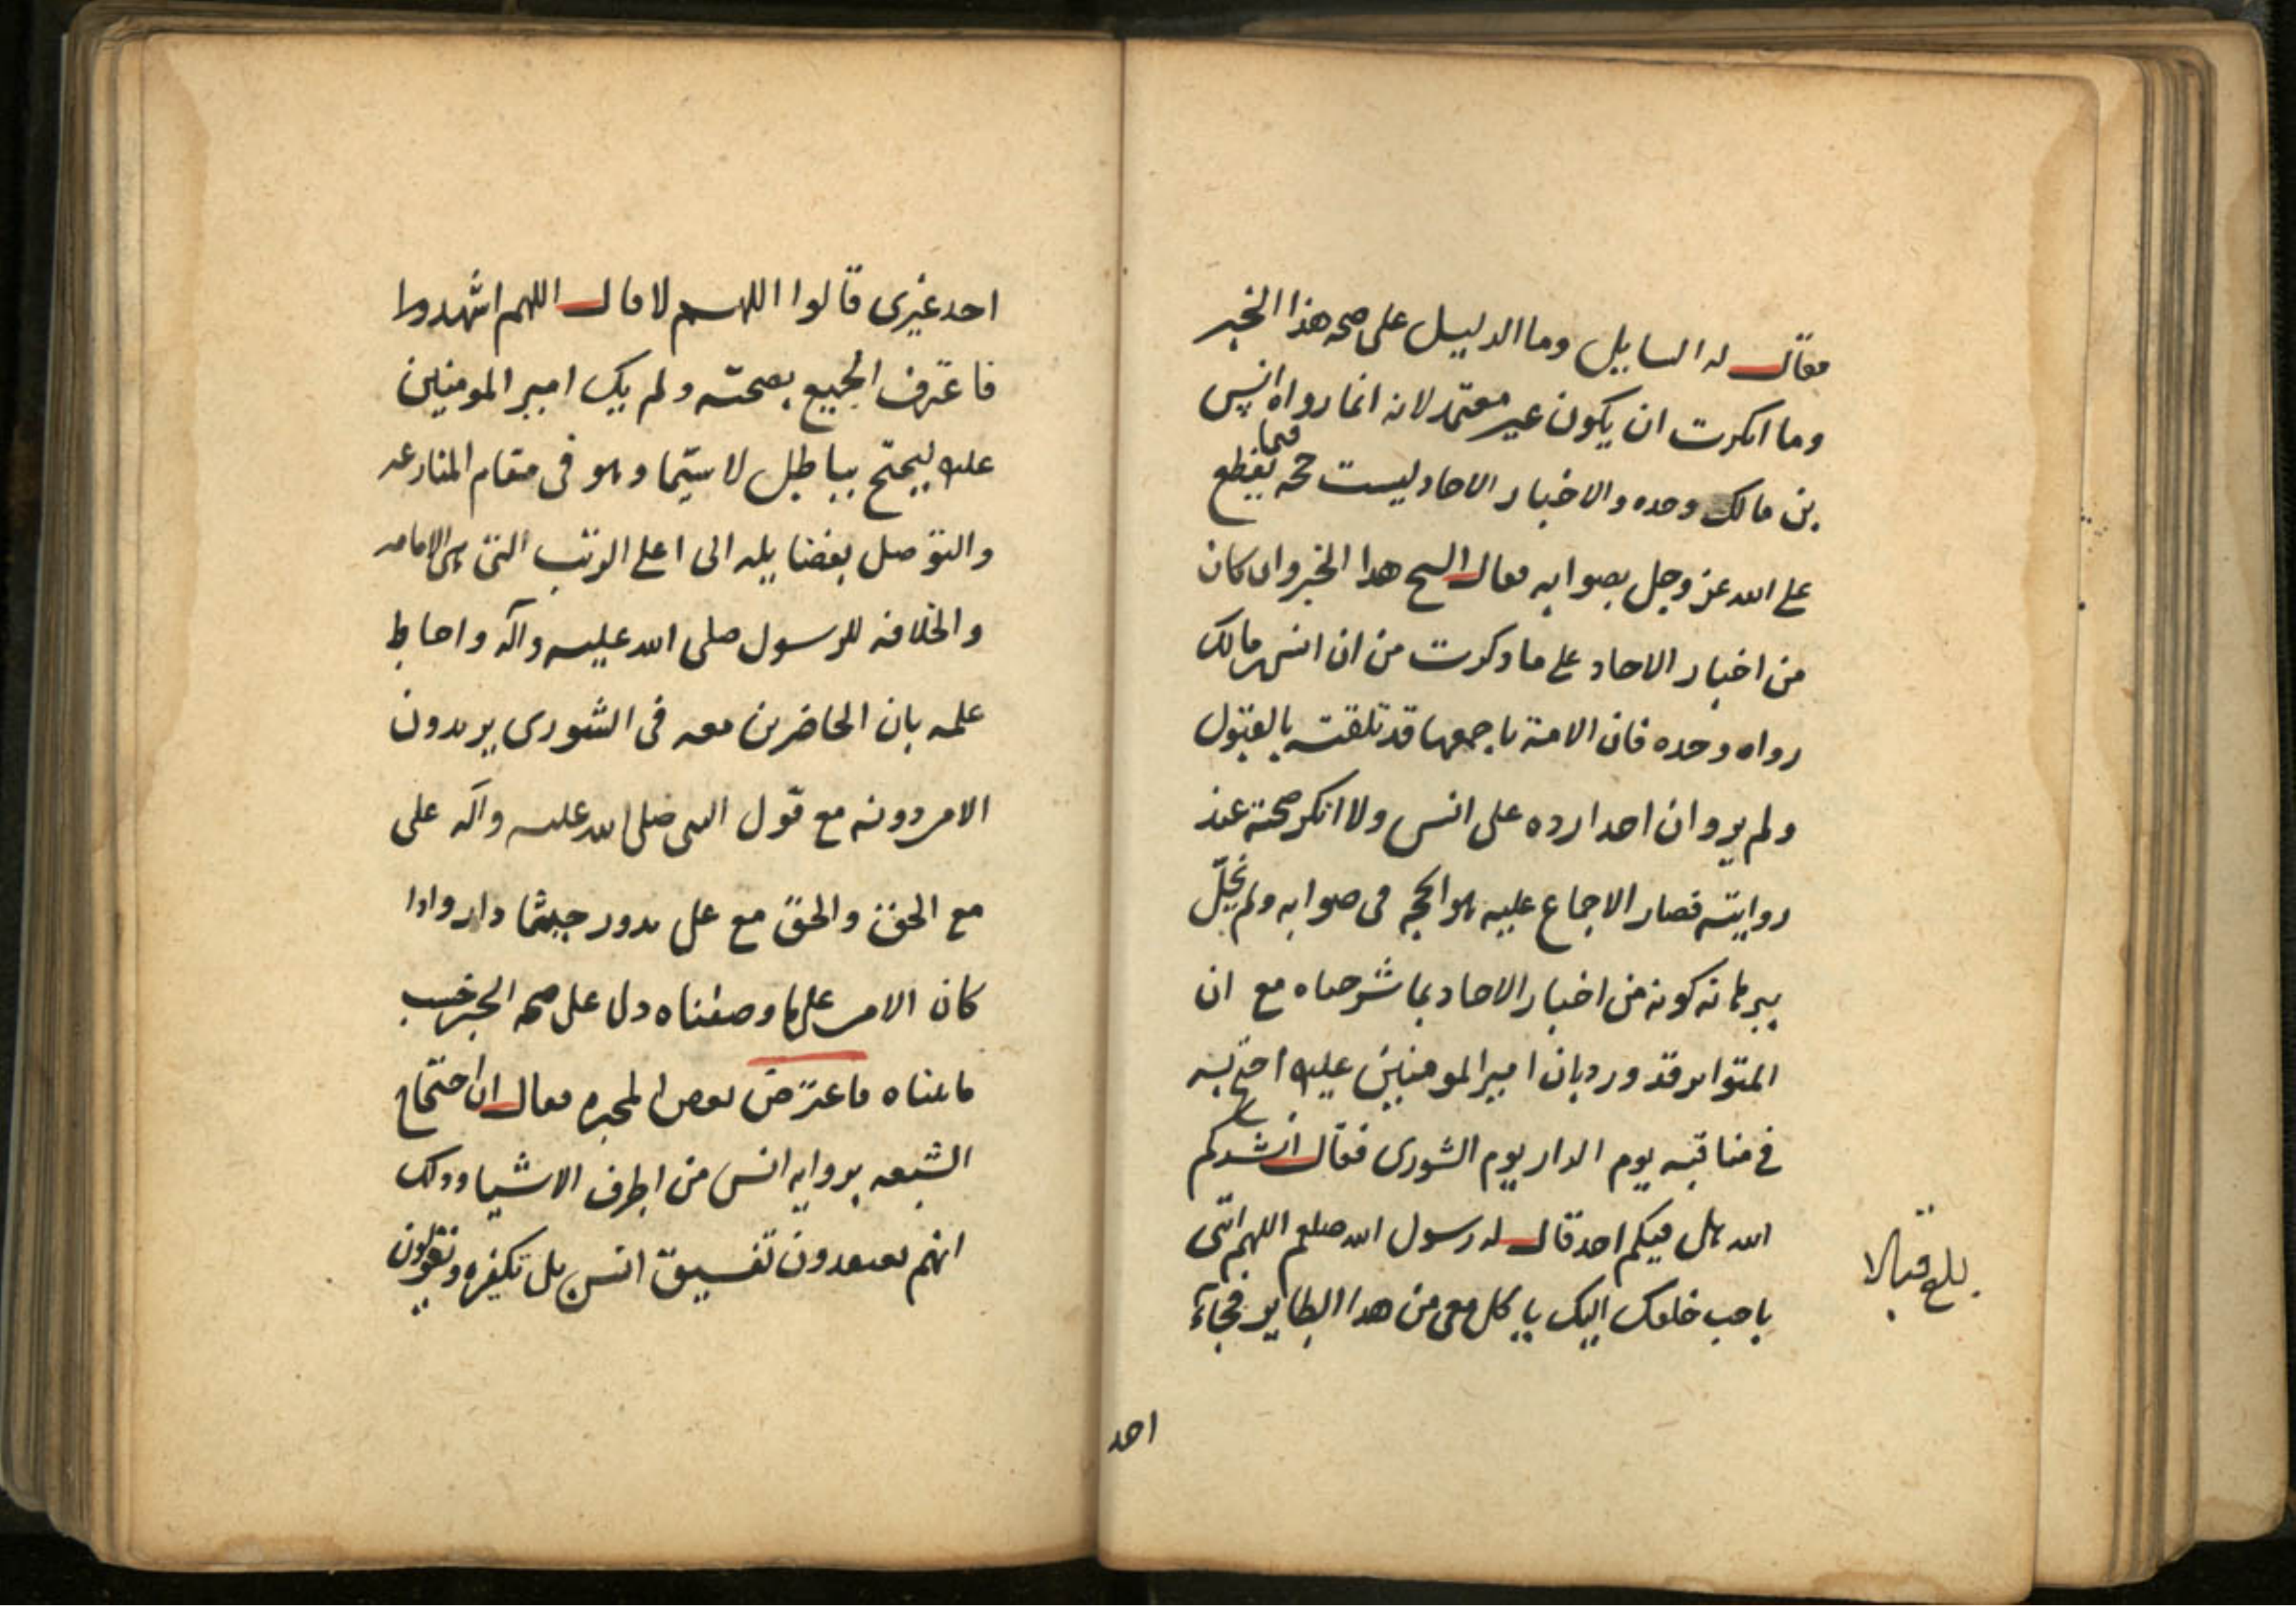 فقال له السایل وما الدلیل علی صحه هذا الخبر
وما انکرت ان یکون غیر معتمد لانه انما رواه انس
بن مالک وحده والاخبار الاحاد لیست حجه فیما یقطع
علی الله عز وجل بصوابه فقال الشیخ هذا الخبر وان کان
من اخبار الاحاد علی ما ذکرت من ان انس بن مالک
رواه وحده فان الامة باجمعها قد تلقته بالقبول
ولم یرو ان احدا رده علی انس ولا انکر صحته عند
روایته فصار الاجماع علیه هو الحجه فی صوابه ولم یخلّ
ببرهانه کونه من اخبار الاحاد بما شرحناه مع ان
المتواتر قد ورد بان امیر المومنین علیه احتج به
فی مناقبه یوم الدار یوم الشوری فقال انشدکم
الله هل فیکم احد قال له رسول الله صلعم اللهم ائتنی
باحب خلقک الیک یاکل معی من هذا الطایر فجاء
بلغ قبالا
احد
احد غیری قالوا اللهم لا قال اللهم اشهد
فاعترف الجمیع بصحته ولم یک امیر المومنین
علیه لیحتج بباطل لا سیّما وهو فی مقام المنازعه
والتوصل بفضایله الی اعلی الرتب التی هی الامامه
والخلافه للرسول صلی الله علیه وآله واحاط
علمه بان الحاضرین معه فی الشوری یریدون
الامر دونه مع قول النبی صلی الله علیه وآله علی
مع الحق والحق مع علی یدور حیثما دار واذا
کان الامر علی ما وصفناه دل علی صحه الخبر حسب
ما بیناه فاعترض بعض المجبره فقال ان احتجاج
الشیعه بروایه انس من اطرف الاشیا وذلک
انهم یعتقدون تفسیق انس بل تکفیره ویقولون